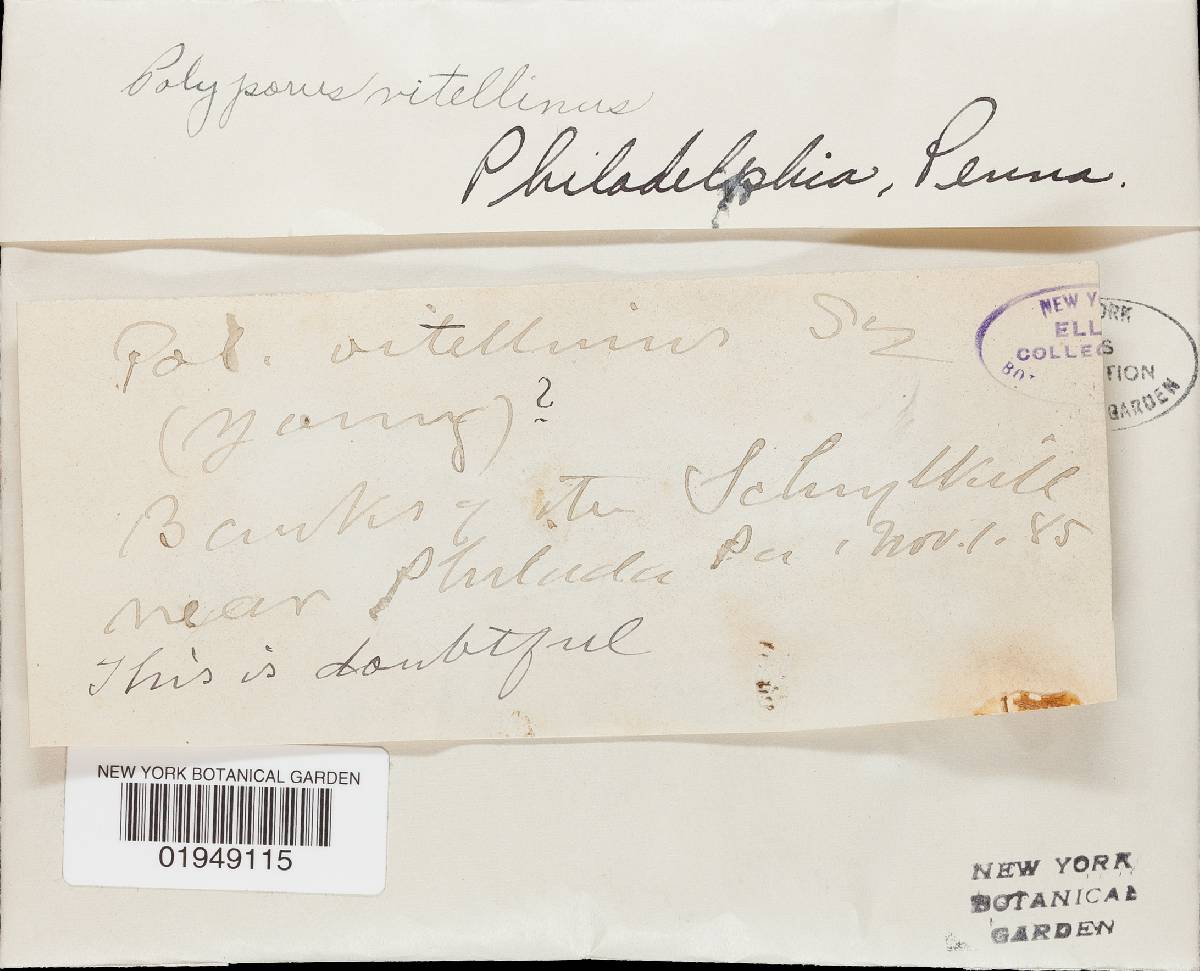 Polyporus vitellinus
Philadelphia, Penna.
Pol. vitellinus Sz
(young)?
Banks of the Schuylkill
near Philada Pa, Nov. 1. 85
This is doubtful
NEW YORK
ELLIS
COLLECTION
BOT. GARDEN
NEW YORK BOTANICAL GARDEN
01949115
NEW YORK
BOTANICAL
GARDEN